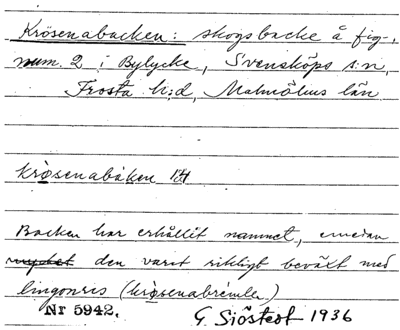 Krösenabacken: skogsbacke å fig-,
num. 2 i Bylycke, Svensköps s:n,
Frosta h:d, Malmöhus län
krösenabáken
Backen har erhållit namnet, emedan
mycket den varit riktigt bevält med
lingonris (krösenabrémle)
Nr 5942.
G Sjöstedt 1936